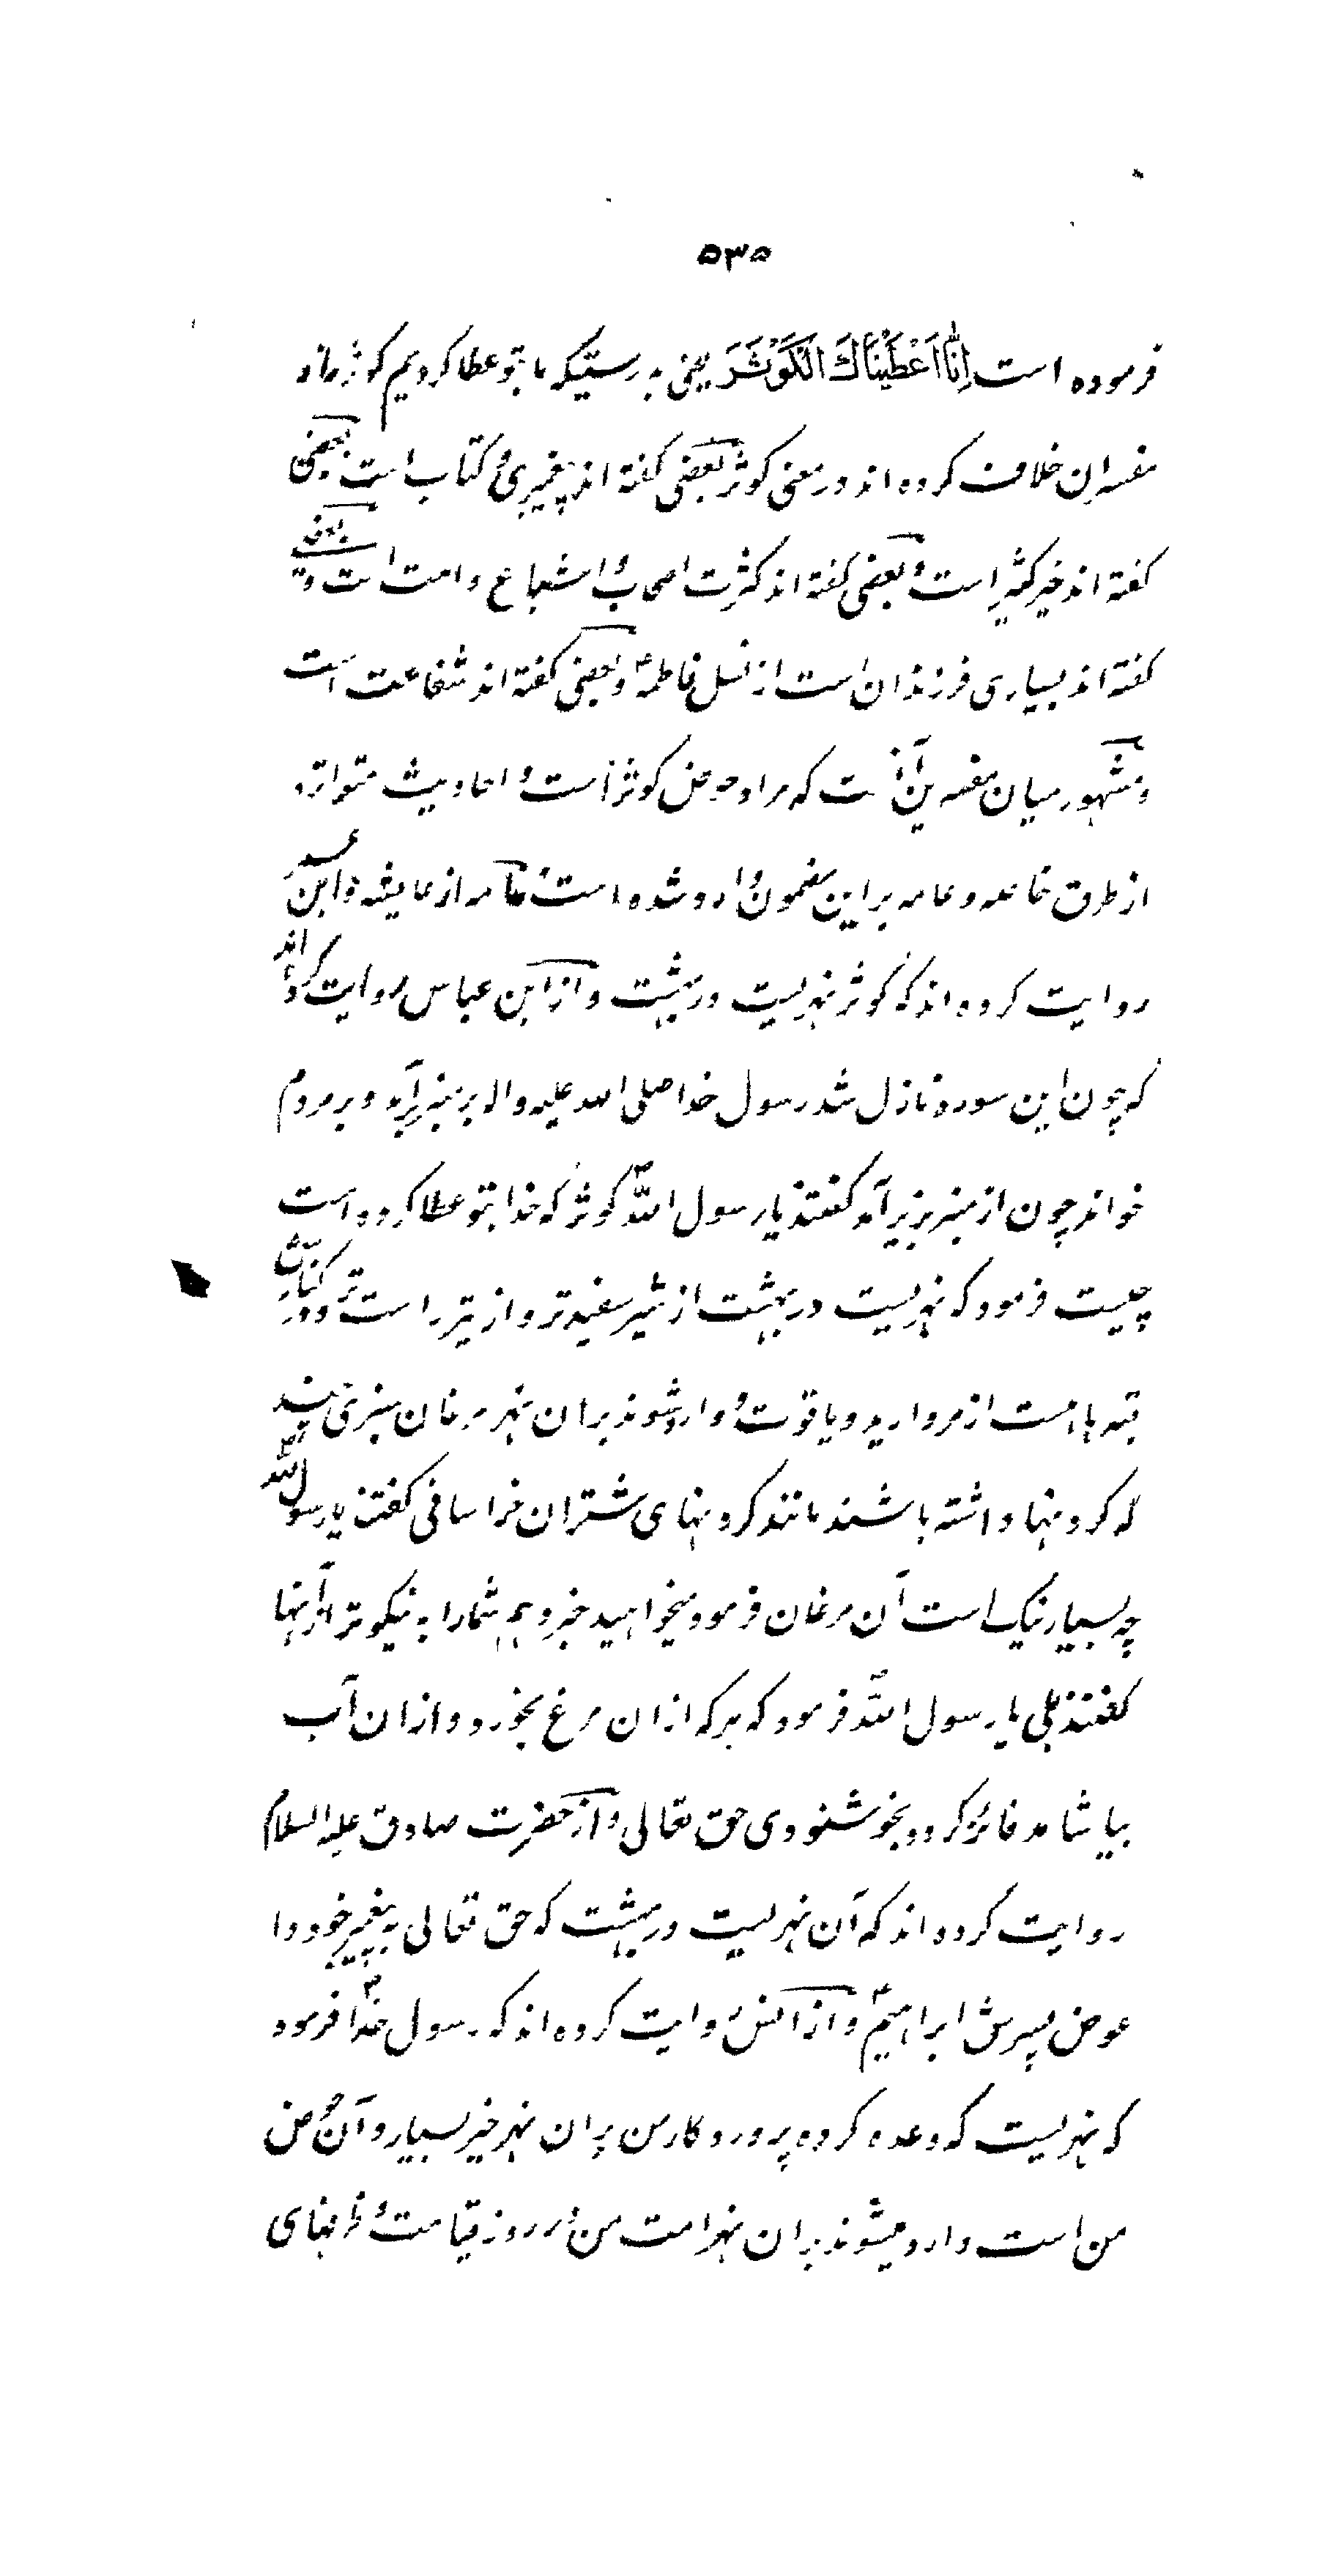 ۵۳۵
فرموده است اِنَّا اَعْطَیْنَاكَ الْكَوْثَرَ یعنی بدرستیکه ما بتو عطا کردیم کوثر را و
مفسران خلاف کرده اند در معنی کوثر بعضی گفته اند پیغمبری و کتاب است بعضی
گفته اند خیر کثیر است و بعضی گفته اند کثرت اصحاب و اشیاع و امت است و بعضی
گفته اند بسیاری فرزندان است از نسل فاطمهؑ و بعضی گفته اند شفاعت است
و مشهور میان مفسرین آنست که مراد حوض کوثر است و احادیث متواتره
از طرق خاصه و عامه بر این مضمون وارد شده است عامه از عایشه و ابن عمر
روایت کرده اند که کوثر نهریست در بهشت و از ابن عباس روایت کرده اند
که چون این سوره نازل شد رسول خدا صلی الله علیه واله بر منبر برآمد و بر مردم
خواند چون از منبر بزیر آمد گفتند یا رسول اللهؐ کوثر که خدا بتو عطا کرده است
چیست فرمود که نهریست در بهشت از شیر سفیدتر و از تیر راست تر و در کنارش
قبه ها هست از مروارید و یاقوت و وارد شوند بران نهر مرغان سبزی چند
که گردنها داشته باشند مانند گردنهای شتران خراسانی گفتند یا رسول الله
چه بسیار نیک است آن مرغان فرمود میخواهید خبر دهم شما را به نیکوتر از آنها
گفتند بلی یا رسول اللهؐ فرمود که هر که ازان مرغ بخورد و ازان آب
بیاشامد فائز گردد بخوشنودی حق تعالی و از حضرت صادق علیه السلام
روایت کرده اند که آن نهریست در بهشت که حق تعالی به پیغمبر خود داد
عوض پسرش ابراهیمؑ و از انس روایت کرده اند که رسول خداؐ فرمود
که نهریست که وعده کرده پروردگار من بران نهر خیر بسیار و آن حوض
من است وارد میشوند بران نهر امت من در روز قیامت و ظرفهای